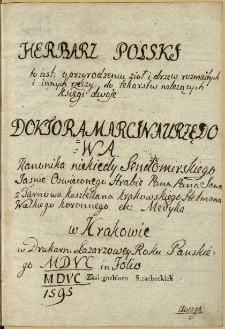 HERBARZ POLSKI
to iest o przyrodzeniu ziół i drzew rozmaitych
i innych rzeczy do lekarstw należących
księgi dwoie
DOKTORA MARCINA URZĘDO
WA
Kanonika niekiedy Sendomirskiego
Jaśnie Oswieconego Hrabie Pana Pana Jana
z Tarnowa kasztellana krakowskiego Hetmana
Wielkiego koronnego etc: Medyka
w Krakowie
w Drukarni Lazarzowey Roku Panskie
go MDVC in Folio
MDVC Z księgozbioru Strachockich
1595